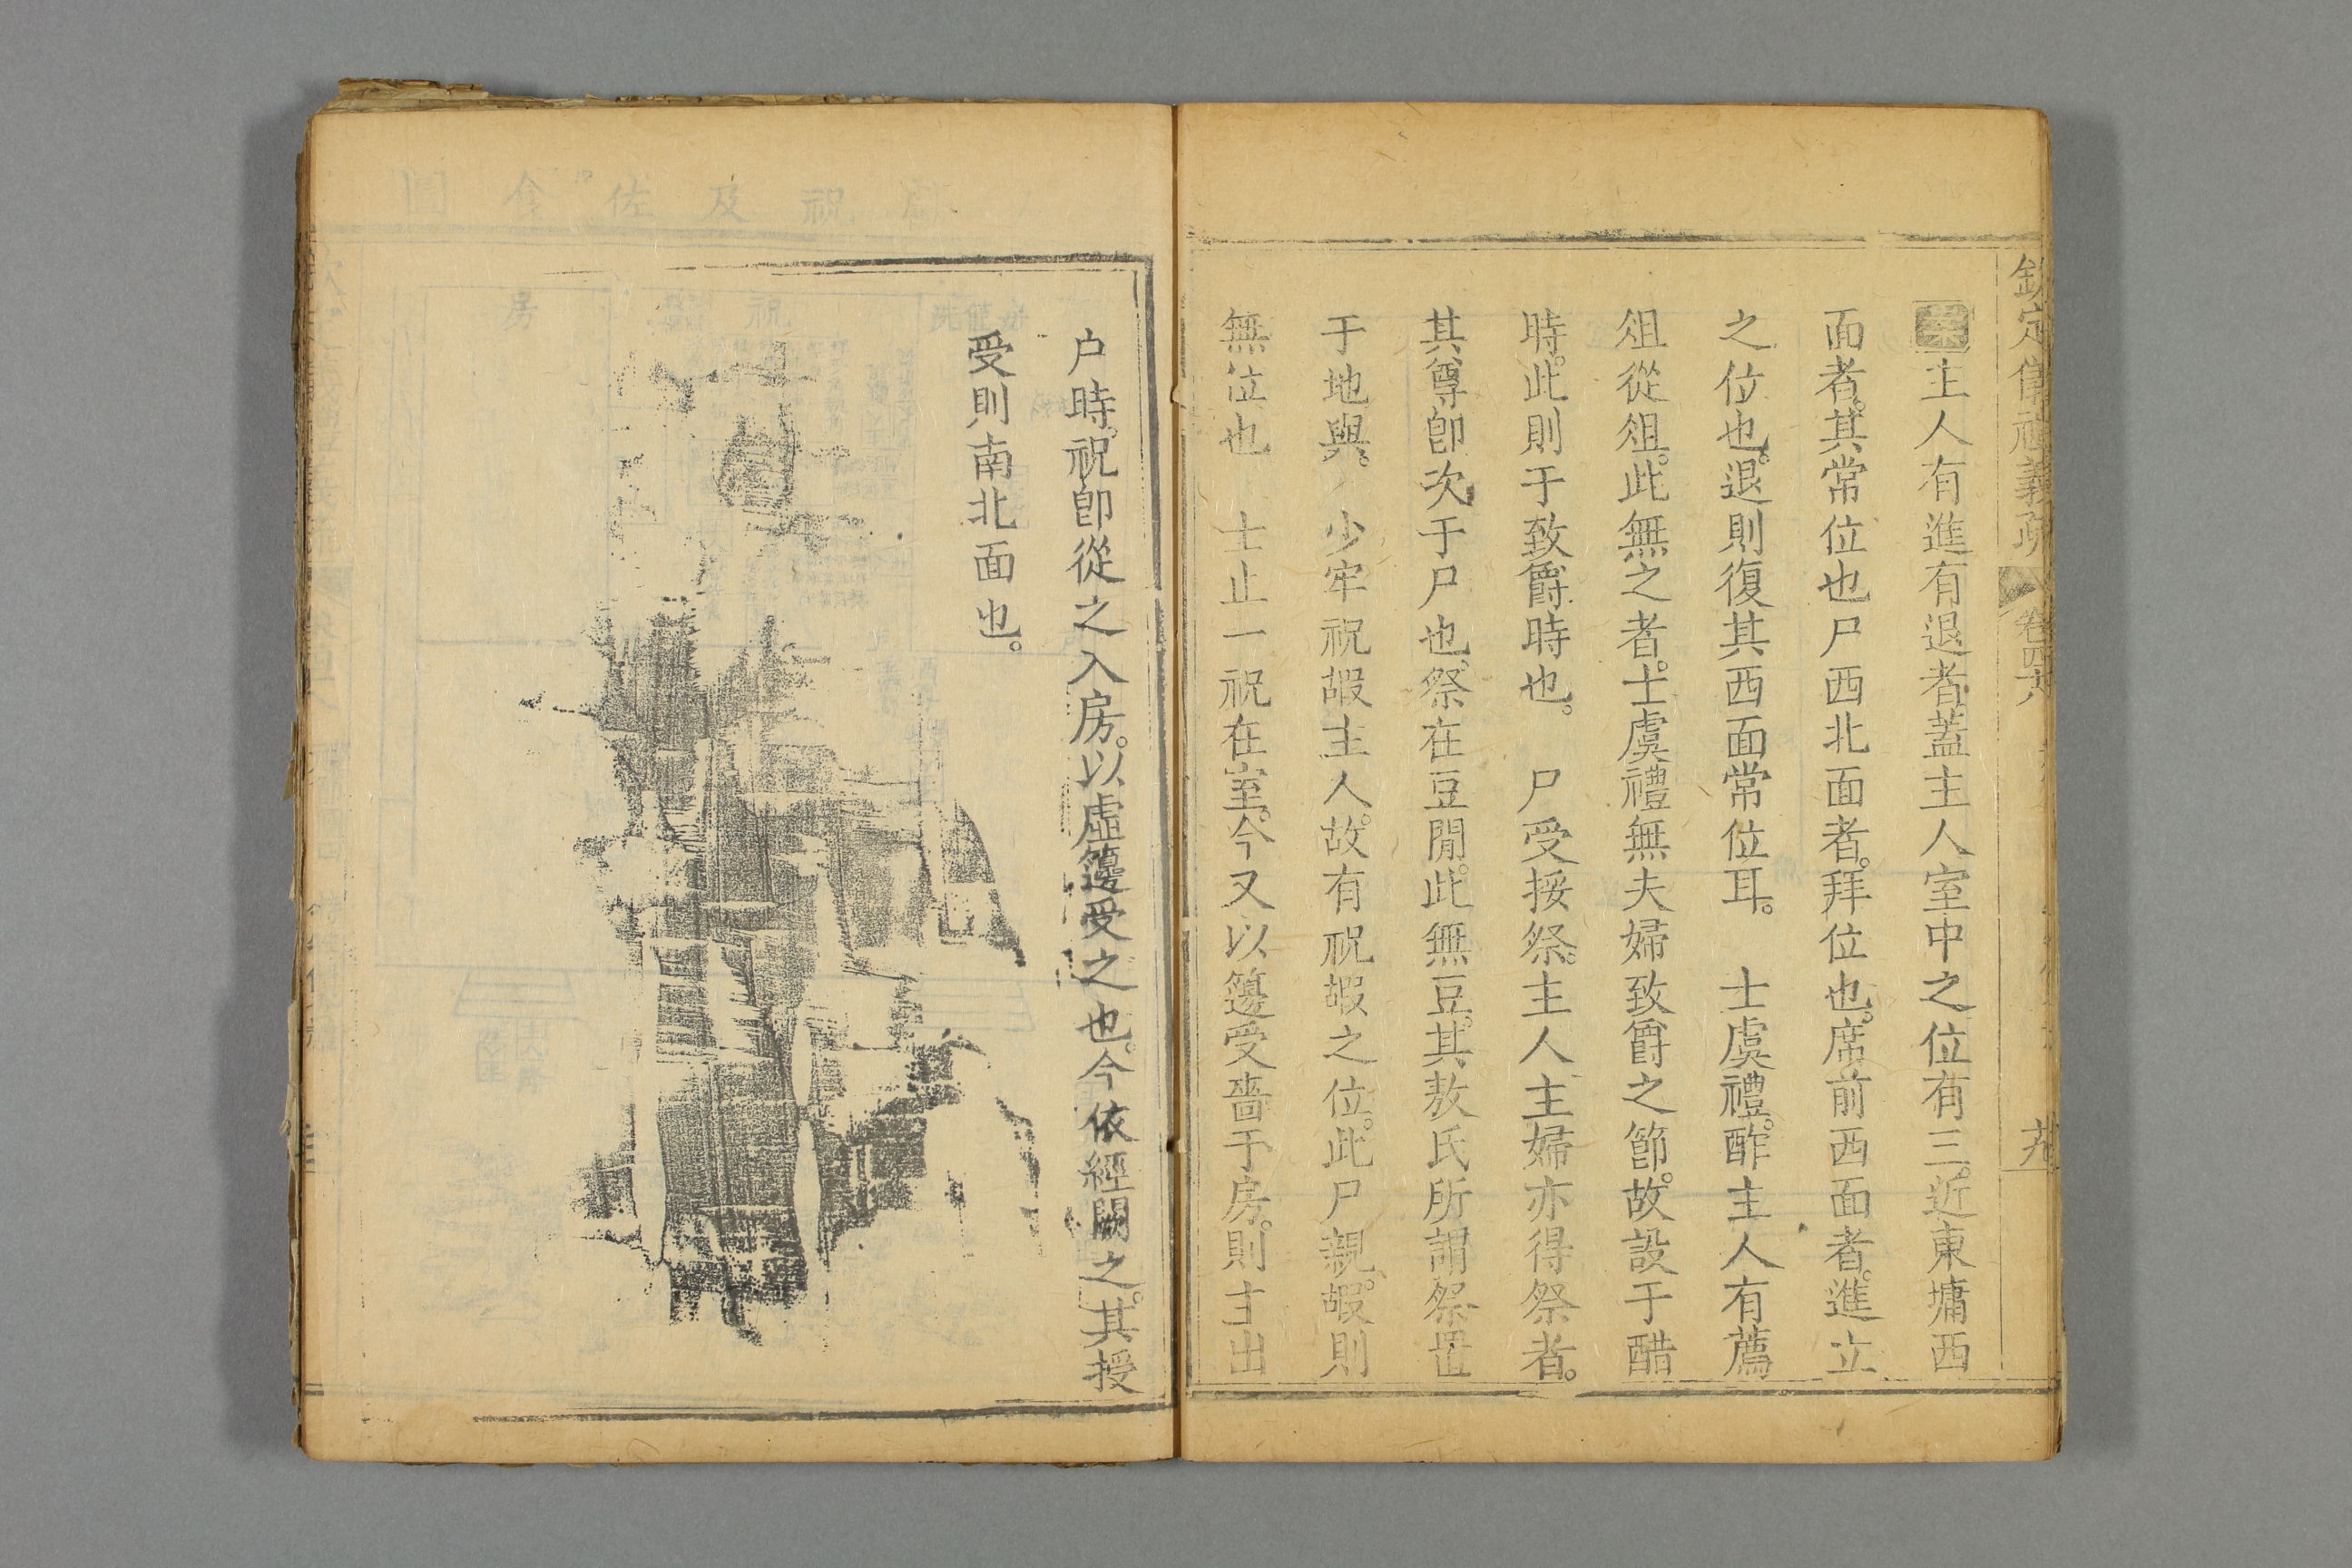 欽定儀禮義疏 卷四十八
案主人有進有退者蓋主人室中之位有三。近東墉西
面者。其常位也尸西北面者。拜位也。席前西面者。進立
之位也。退則復其西面常位耳。 士虞禮。酢主人有薦
俎從俎。此無之者。士虞禮無夫婦致爵之節。故設于醋
時。此則于致爵時也。 尸受挼祭。主人主婦亦得祭者。
其尊卽次于尸也。祭在豆閒。此無豆。其敖氏所謂祭置
于地與。 少牢祝嘏主人。故有祝嘏之位。此尸親嘏。則
無位也 士止一祝在室。今又以籩受嗇于房。則主出
户時。祝卽從之入房。以虛籩受之也。今依經闕之。其授
受則南北面也。